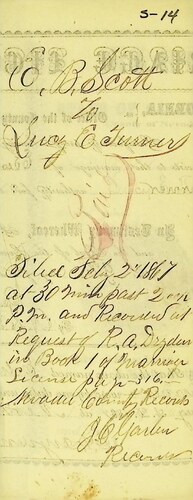 S-14
C. B. Scott
To
Lucy E Turner
Filed Feby 2d 1867
at 30 min past 2
P.M. and Recorded at
Request of R. A. Dryden
in Book 1 of Marriage
License page 316
Nevada County Records
J C Garber
Recorder